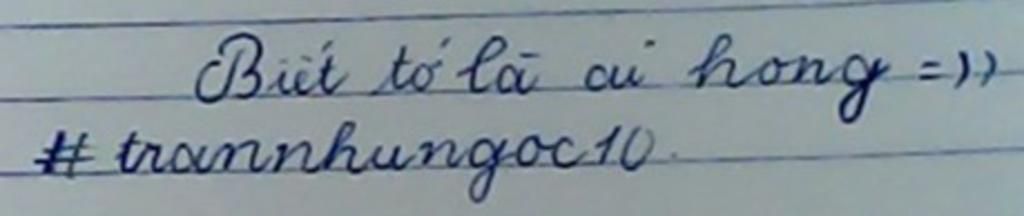 Biết tớ là ai hong =))
#trannhungoc10